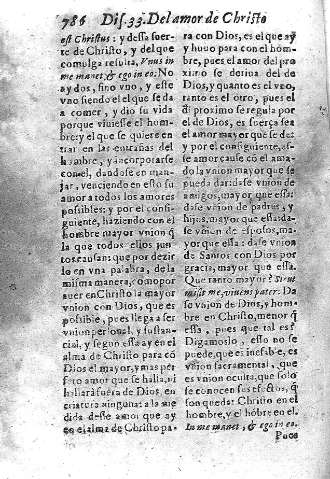 786 Dis. 33. Del amor de Christo
est Christus: y dessa suer-
te de Christo, y del que
comulga resulta, Vnus in
me manet, & ego in eo. No
ay dos, sino vno, y esse
vno siendo el que se dà
a comer, y dio su vida
porque viuiesse el hom-
bre: y el que se quiere en-
trar en las entrañas del
hombre, y incorporarse
con el, dandose en man-
jar, venciendo en esto su
amor a todos los amores
possibles: y por el consi-
guiente, haziendo con el
hombre mayor vnion q̃
la que todos ellos jun-
tos causan: que por dezir
lo en vna palabra, de la
misma manera, como por
auer en Christo la mayor
vnion con Dios, que es
possible, pues llega a ser
vnion personal, y sustan-
cial, y segun essa ay en el
alma de Christo para cõ
Dios el mayor, y mas per-
feto amor que se halla, ni
hallarà fuera de Dios en
criatura ninguna: a la me
dida desse amor que ay
en el alma de Christo pa-
ra con Dios, es el que ay
y huuo para con el hom-
bre, pues el amor del pro
ximo se deriua del de
Dios, y quanto es el vno,
tanto es el otro, pues el
del proximo se regula por
el de Dios, es fuerça sea
el amor mayor que se dè:
y por el consiguiente, es-
se amor cause cõ el ama-
do la vnion mayor que se
pueda dar: dase vnion de
amigos, mayor que essa:
dase vnion de padres, y
hijos, mayor que essa: da-
se vnion de esposos, ma-
yor que essa: dase vnion
de Santos con Dios por
gracia, mayor que essa.
Que tanto mayor? Sicut
misit me, viuens pater. Da
se vnion de Dios, y hom-
bre en Christo, menor q̃
essa, pues que tal es?
Digamoslo, esso no se
puede, que es inefable, es
vnion sacramental, que
es vnion oculta, que solo
se conocen sus efectos, q̃
son quedar Christo en el
hombre, y el hõbre en el.
In me manet, & ego in eo.
Pues